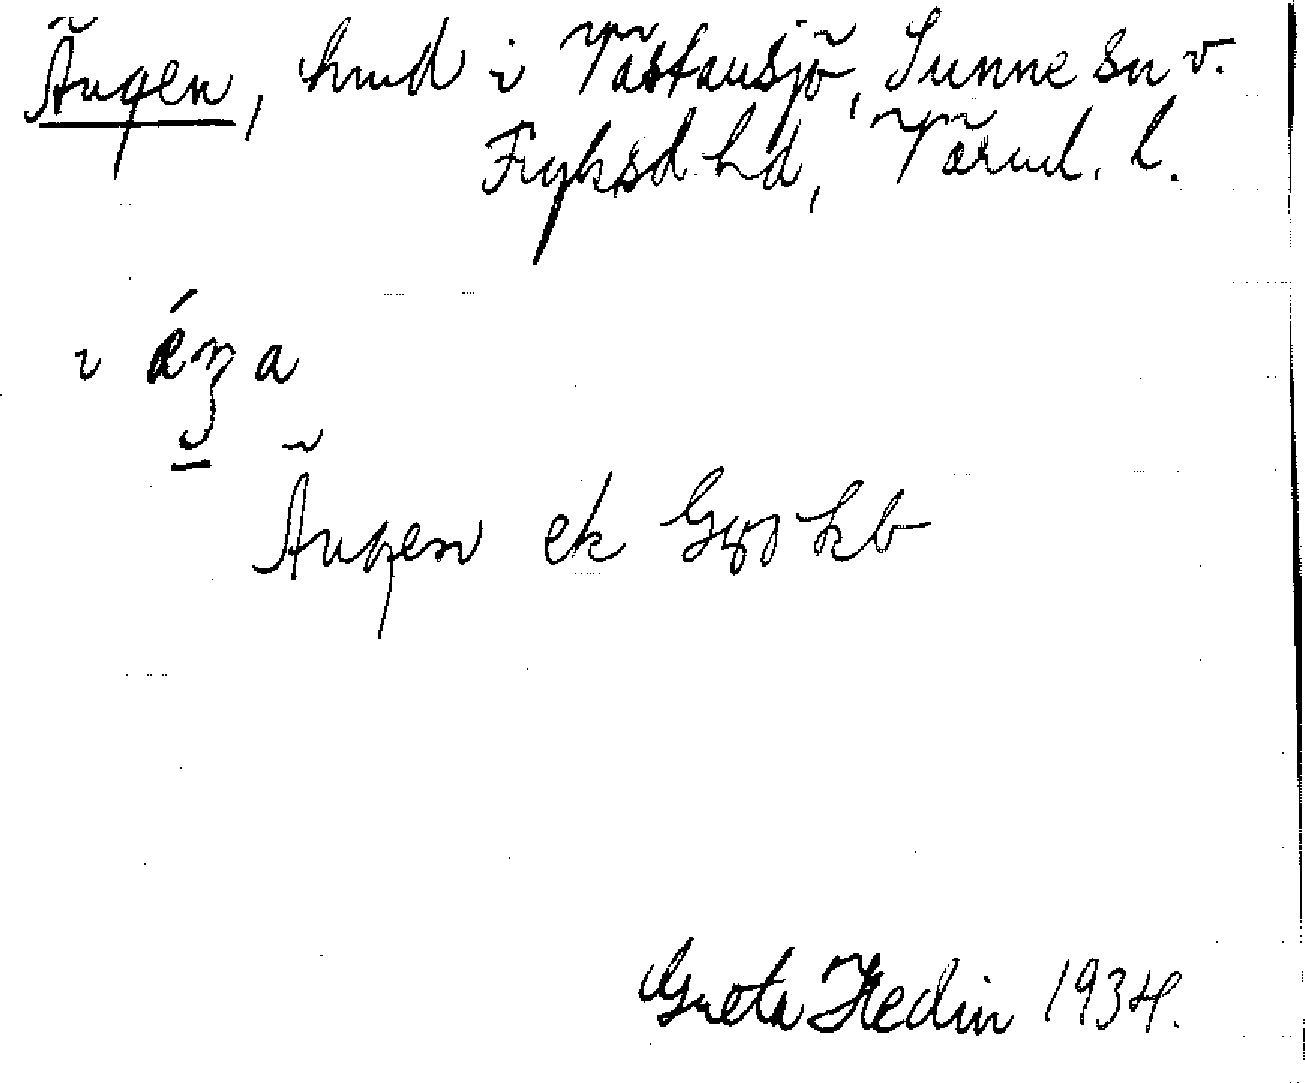 Ängen, hmd i Västansjö, Sunne sn v.
Fryksd. hd, Värml. l.
i
Ängen ek Gsj kb
Greta Hedin 1934.